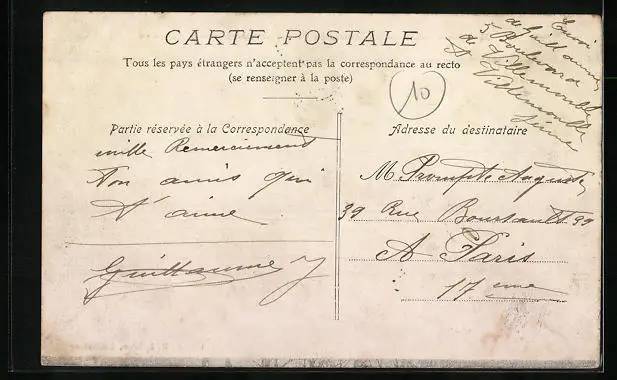 CARTE POSTALE
Tous les pays étrangers n'acceptent pas la correspondance au recto
(se renseigner à la poste)
Envoi
de Guillaume
5 Boulevard
de Villemomble
A Villemomble
Seine
10
Partie réservée à la Correspondance
mille Remerciement
Ton amis qui
t'aime
Guillaume
Adresse du destinataire
M Prompte Auguste
39 Rue Boursault 39
A Paris
17 eme